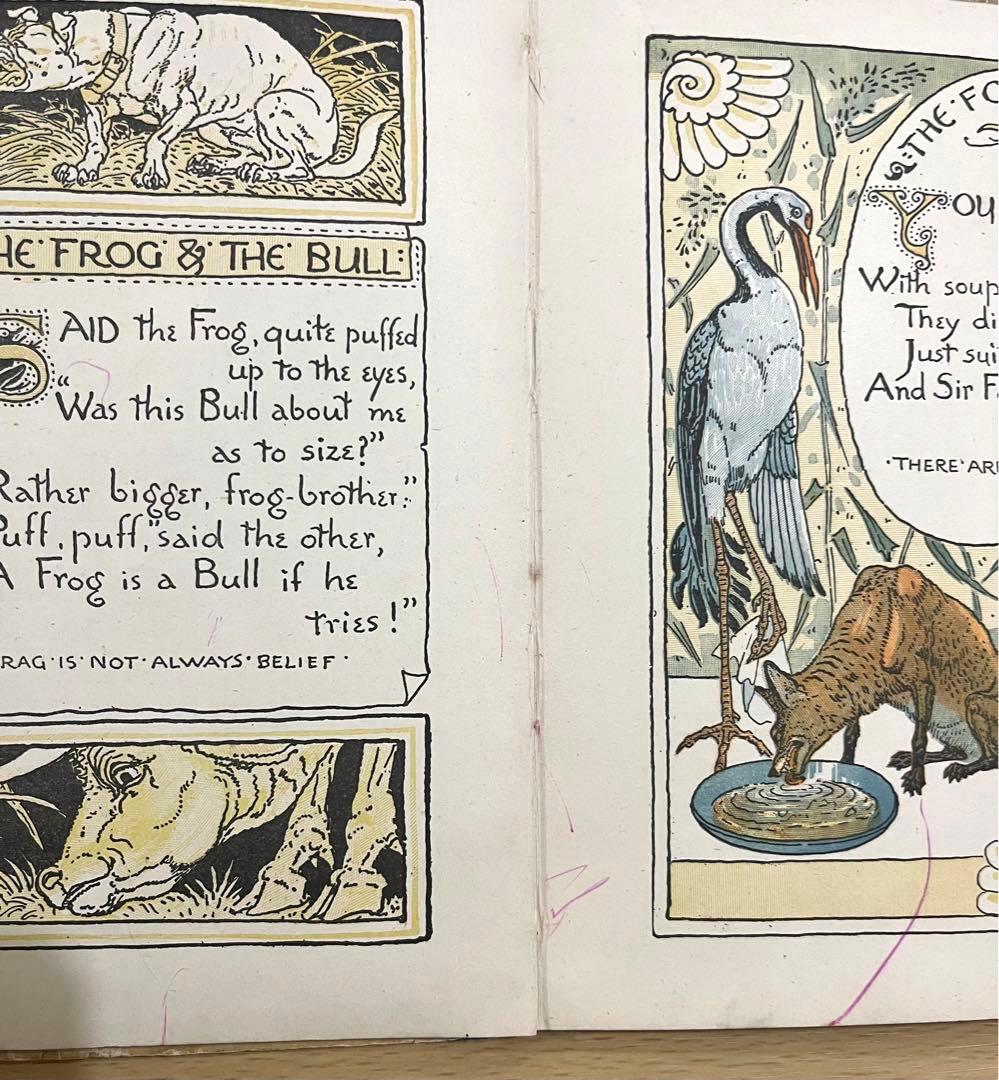 HE FROG & THE BULL:
SAID the Frog, quite puffed
up to the eyes,
"Was this Bull about me
as to size?"
Rather bigger, frog-brother."
Puff, puff," said the other,
A Frog is a Bull if he
tries!"
RAG·IS·NOT·ALWAYS·BELIEF·
THE·FO
YOU
With soup
They di
Just sui
And Sir F
·THERE·ARE